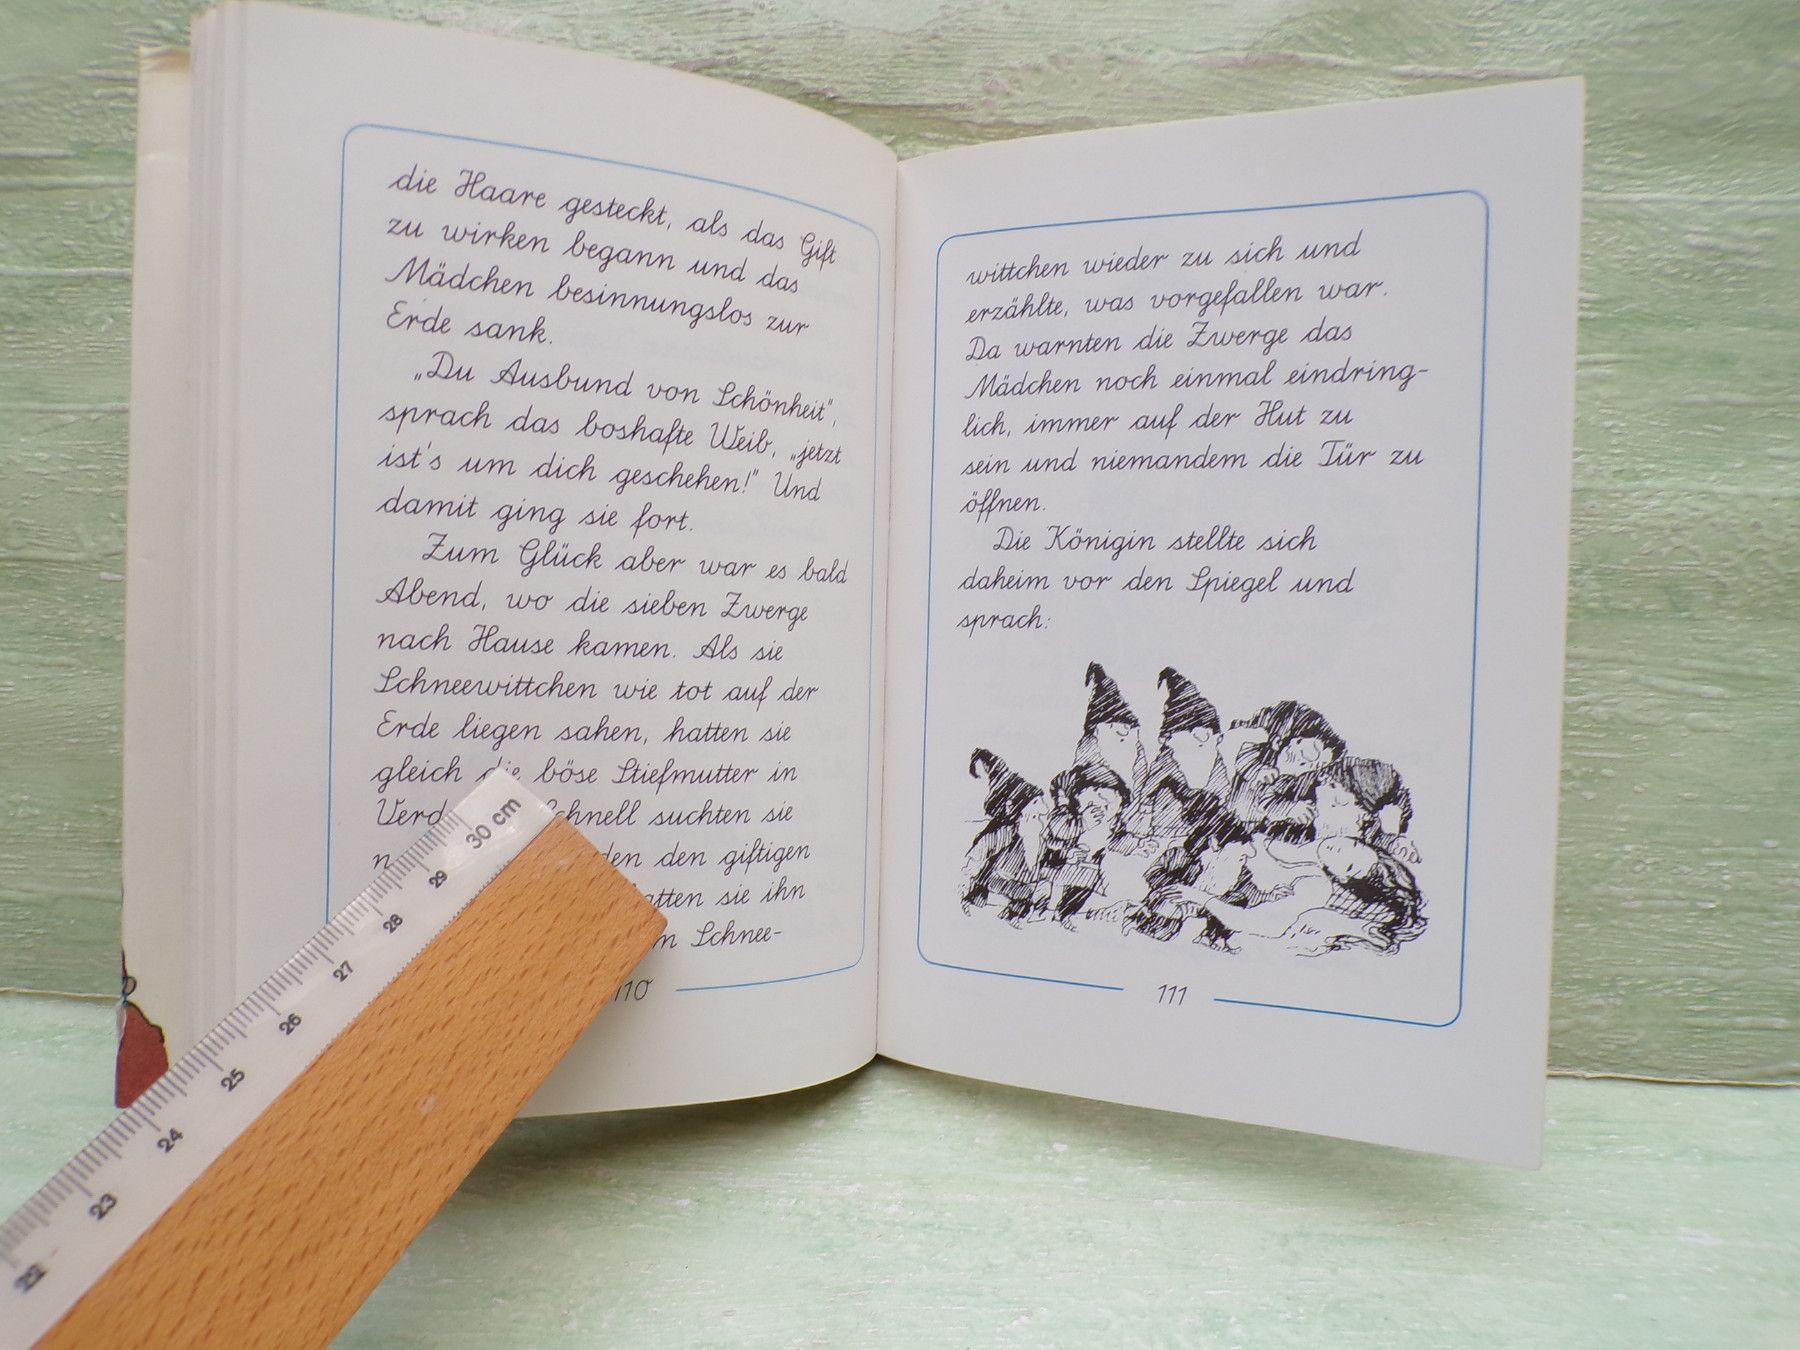 die Haare gesteckt, als das Gift
zu wirken begann und das
Mädchen besinnungslos zur
Erde sank.
„Du Ausbund von Schönheit",
sprach das boshafte Weib, „jetzt
ist's um dich geschehen!" Und
damit ging sie fort.
Zum Glück aber war es bald
Abend, wo die sieben Zwerge
nach Hause kamen. Als sie
Schneewittchen wie tot auf der
Erde liegen sahen, hatten sie
gleich die böse Stiefmutter in
Verd chnell suchten sie
n den den giftigen
atten sie ihn
m Schnee-
110
wittchen wieder zu sich und
erzählte, was vorgefallen war.
Da warnten die Zwerge das
Mädchen noch einmal eindring-
lich, immer auf der Hut zu
sein und niemandem die Tür zu
öffnen.
Die Königin stellte sich
daheim vor den Spiegel und
sprach:
111
22 23 24 25 26 27 28 29 30 cm